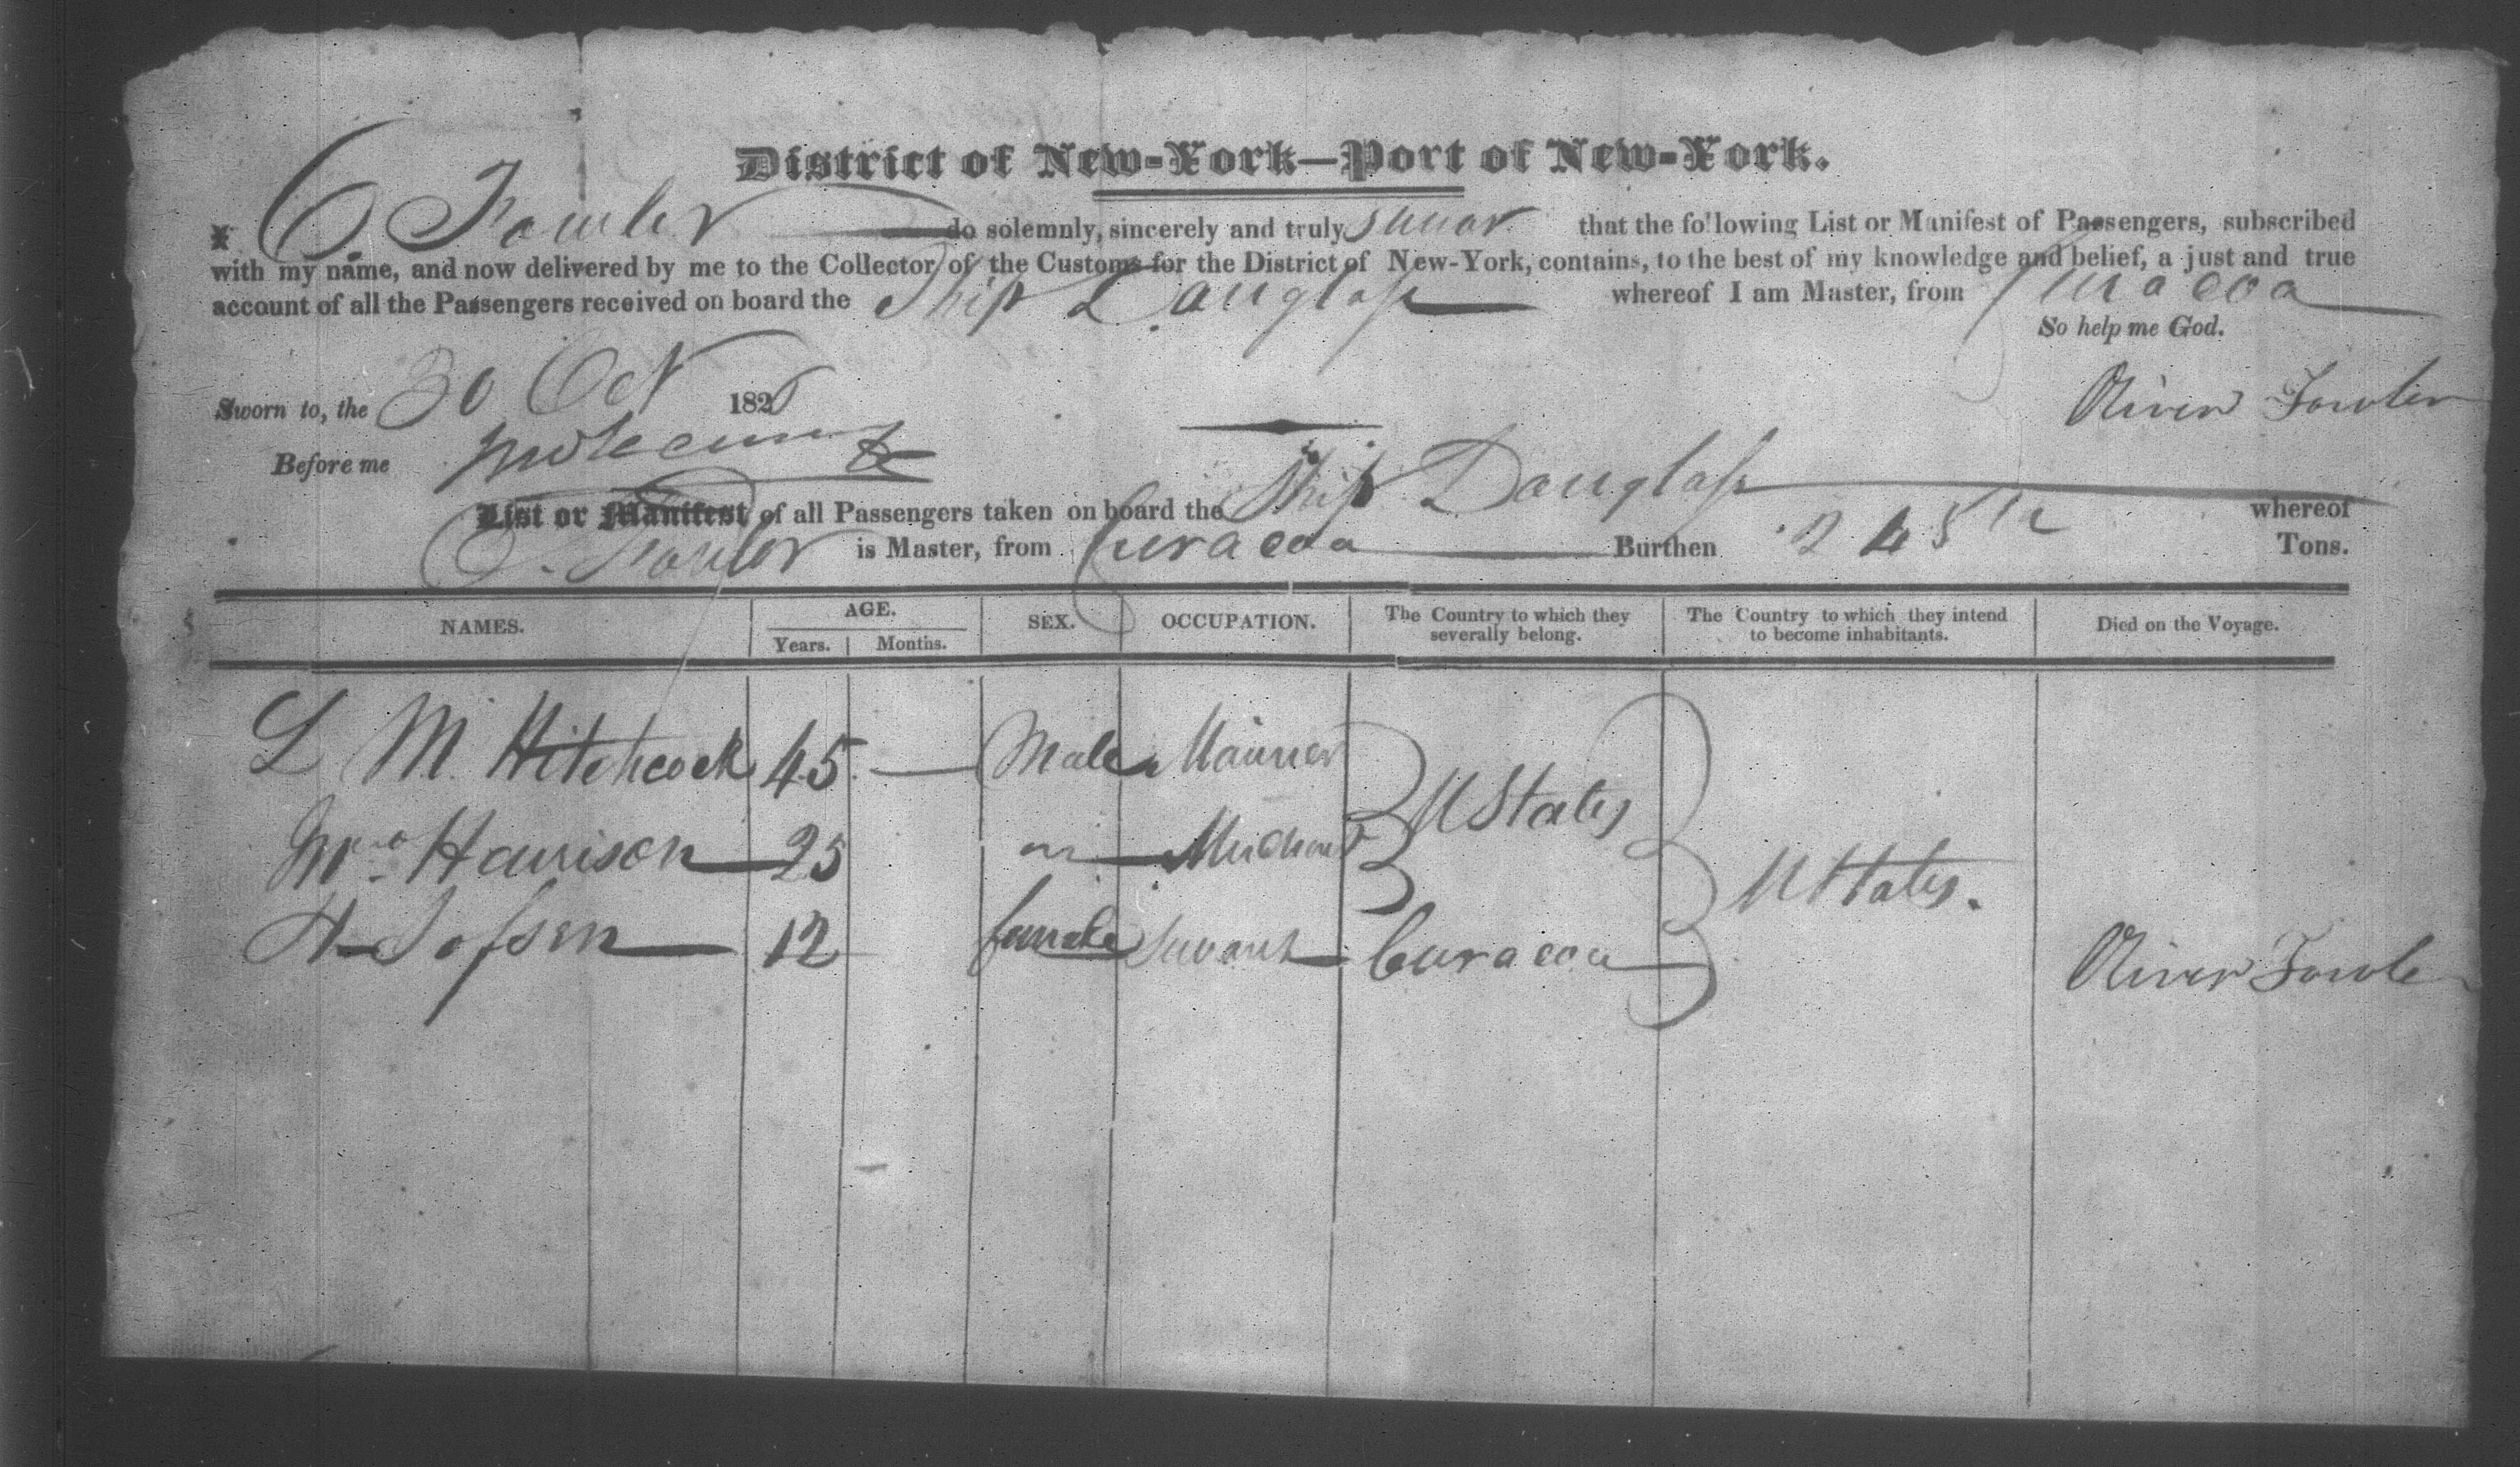 District of New-York—Port of New-York.
I O Fowler do solemnly, sincerely and truly swear that the following List or Manifest of Passengers, subscribed
with my name, and now delivered by me to the Collector of the Customs for the District of New-York, contains, to the best of my knowledge and belief, a just and true
account of all the Passengers received on board the Ship Douglass whereof I am Master, from Curacoa
So help me God.
Sworn to, the 30 Oct 1826 Oliver Fowler
Before me
List or Manifest of all Passengers taken on board the Ship Douglass whereof
O. Fowler is Master, from Curacoa Burthen 245 Tons.
NAMES. AGE. Years. Months. SEX. OCCUPATION. The Country to which they severally belong. The Country to which they intend to become inhabitants. Died on the Voyage.
L M Hitchcock 45 — Male Mariner
U States
Mr Harrison 25 Merchant
U States.
H 12 female Servant Curacoa
Oliver Fowler